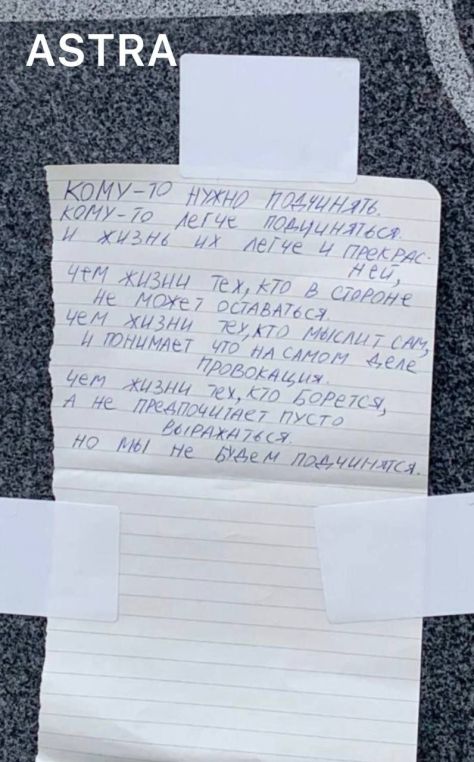 ASTRA
КОМУ-ТО НУЖНО ПОДЧИНЯТЬ.
КОМУ-ТО ЛЕГЧЕ ПОДЧИНЯТЬСЯ.
И ЖИЗНЬ ИХ ЛЕГЧЕ И ПРЕКРАС-
НЕЙ,
ЧЕМ ЖИЗНИ ТЕХ, КТО В СТОРОНЕ
НЕ МОЖЕТ ОСТАВАТЬСЯ.
ЧЕМ ЖИЗНИ ТЕХ, КТО МЫСЛИТ САМ,
И ПОНИМАЕТ ЧТО НА САМОМ ДЕЛЕ
ПРОВОКАЦИЯ.
ЧЕМ ЖИЗНИ ТЕХ, КТО БОРЕТСЯ,
А НЕ ПРЕДПОЧИТАЕТ ПУСТО
ВЫРАЖАТЬСЯ.
НО МЫ НЕ БУДЕМ ПОДЧИНЯТСЯ.